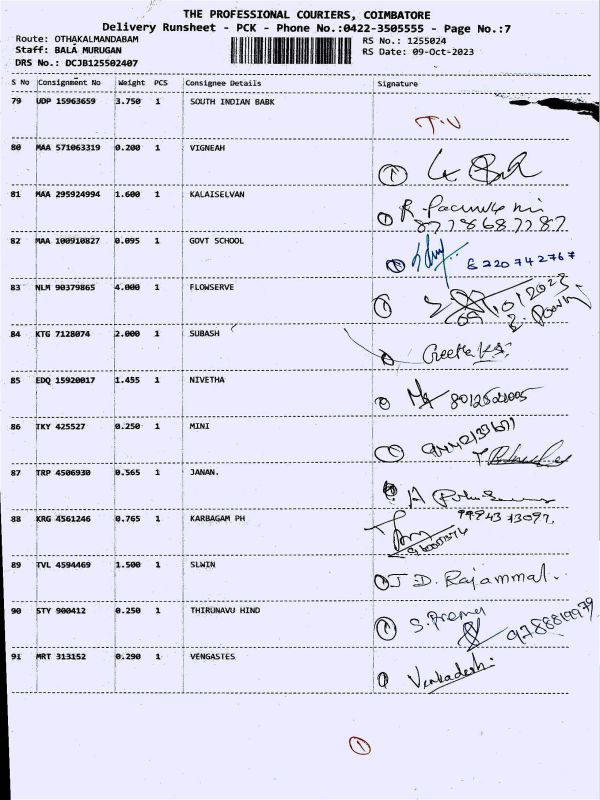 THE PROFESSIONAL COURIERS, COIMBATORE
Delivery Runsheet - PCK - Phone No.:0422-3505555 - Page No.:7
Route: OTHAKALMANDABAM RS No.: 1255024
Staff: BALA MURUGAN RS Date: 09-Oct-2023
DRS No.: DCJB125502407
S No Consignment No Weight PCS Consignee Details Signature
79 UDP 15963659 3.750 1 SOUTH INDIAN BABK T.V
80 MAA 571063319 0.200 1 VIGNEAH 1
81 MAA 295924994 1.600 1 KALAISELVAN 1 R.
8778687787
82 MAA 100910827 0.095 1 GOVT SCHOOL 1 6220742767
83 NLM 90379865 4.000 1 FLOWSERVE 1
84 KTG 7128074 2.000 1 SUBASH Geetha K.S.
85 EDQ 15920017 1.455 1 NIVETHA 1
86 TKY 425527 0.250 1 MINI 1
87 TRP 4506930 0.565 1 JANAN. A
88 KRG 4561246 0.765 1 KARBAGAM PH 99943 73097.
89 TVL 4594469 1.500 1 SLWIN 1 J D. Rajammal.
90 STY 900412 0.250 1 THIRUNAVU HIND 1 S. Prema 9788819979
91 MRT 313152 0.290 1 VENGASTES 1 Venkadesh
1